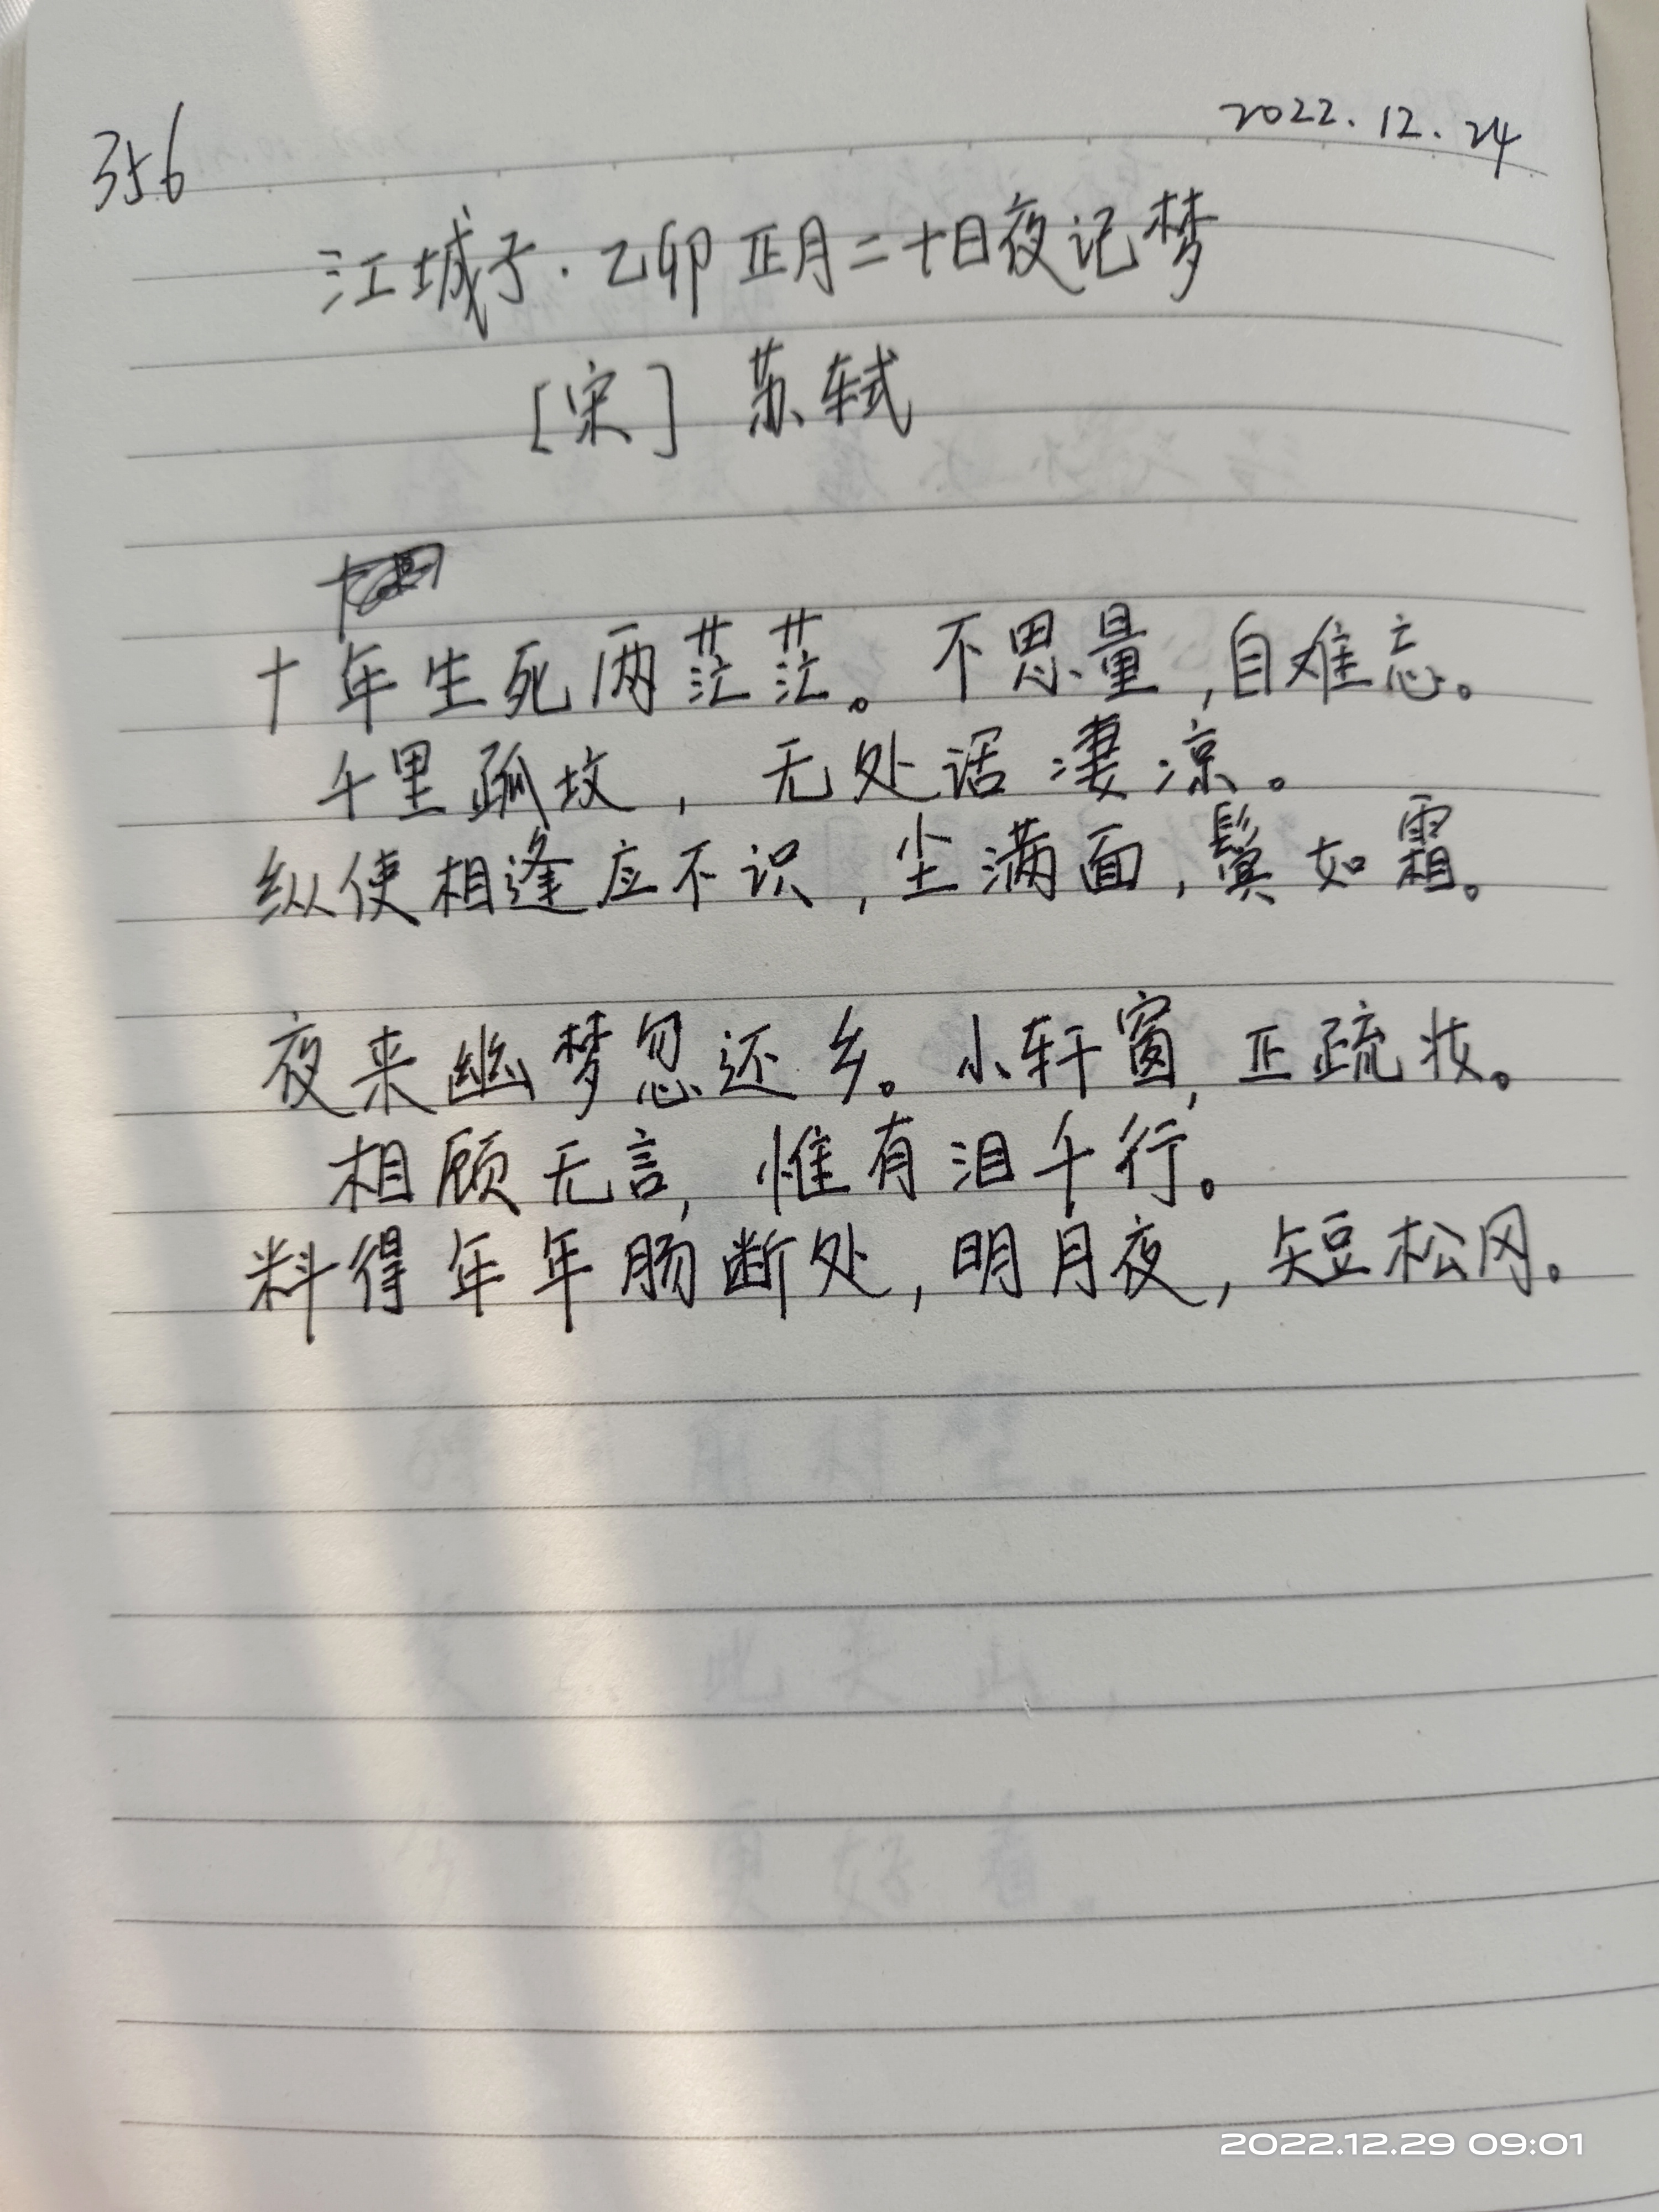 356
2022.12.24
江城子·乙卯正月二十日夜记梦
[宋] 苏轼
十年生死两茫茫。不思量,自难忘。
千里孤坟,无处话凄凉。
纵使相逢应不识,尘满面,鬓如霜。
夜来幽梦忽还乡。小轩窗,正疏妆。
相顾无言,惟有泪千行。
料得年年肠断处,明月夜,短松冈。
2022.12.29 09:01